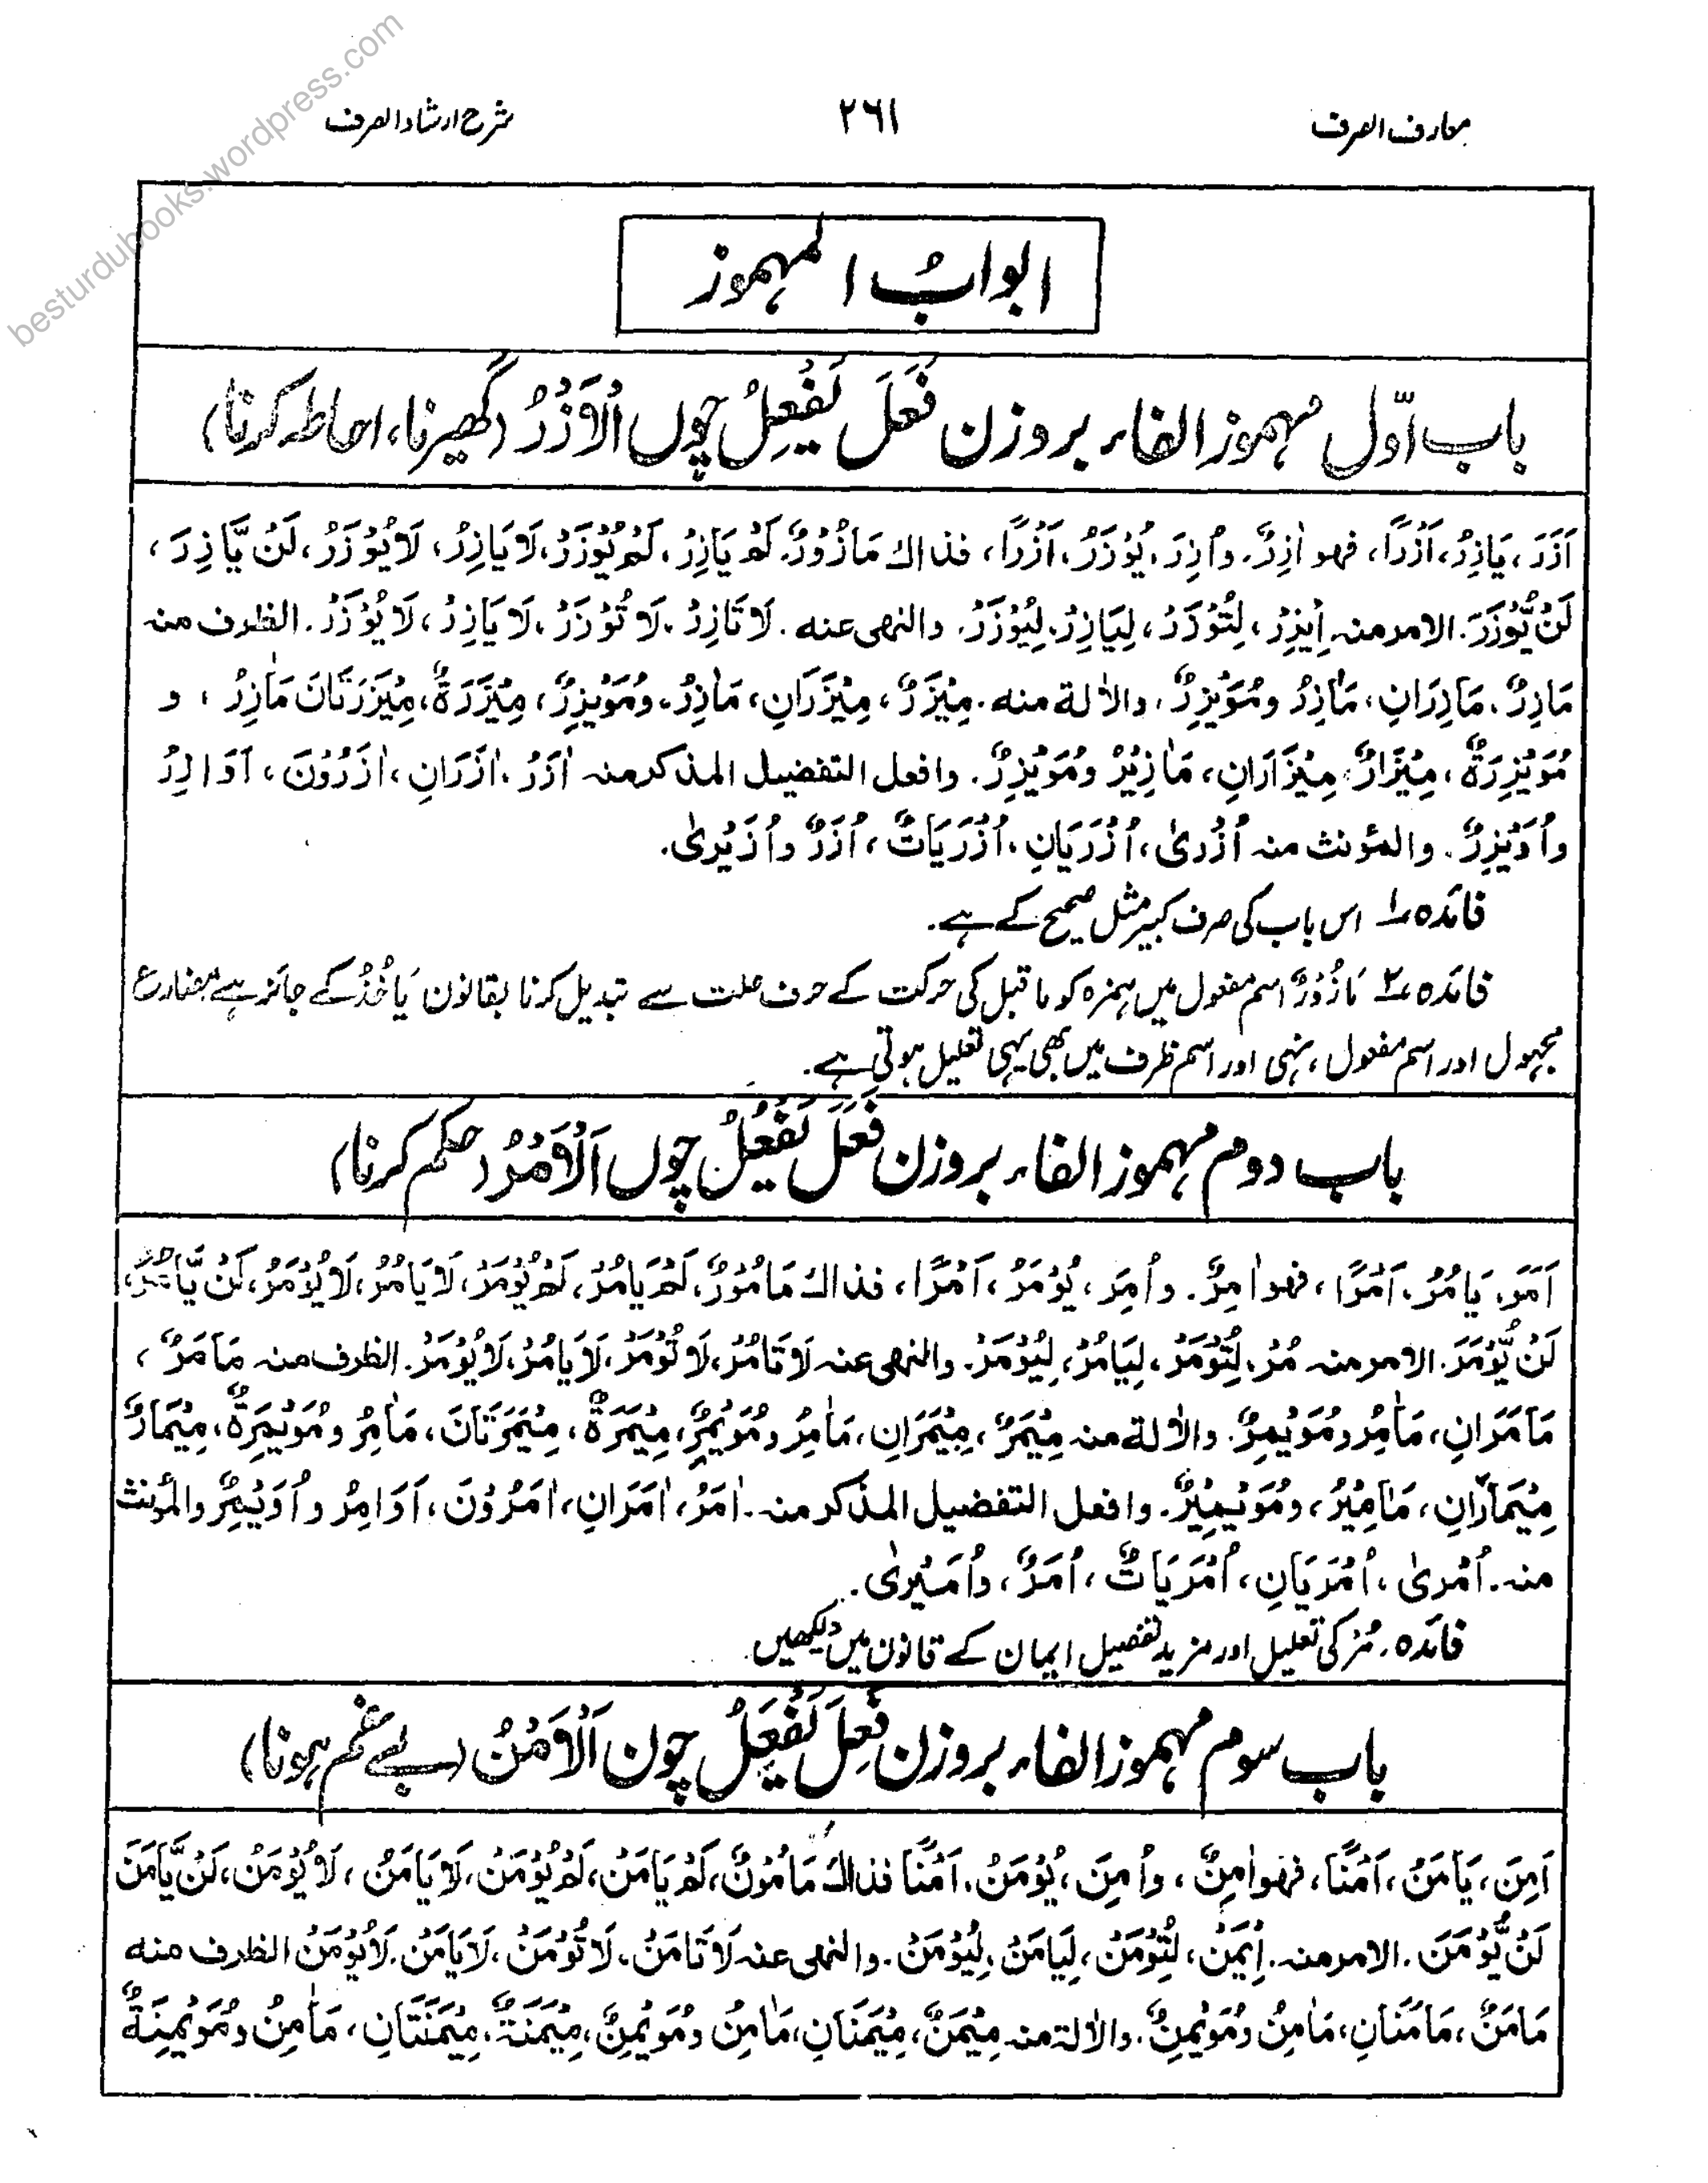 معارف الصرف
٢٦١
شرح ارشاد الصرف
besturdubooks.wordpress.com
ابوابُ المہموز
باب اوّل مہموز الفاء بروزن فَعَلَ یَفْعِلُ چوں اَلْاَزْرُ (گھیرنا، احاطہ کرنا)
اَزَرَ، یَاْزِرُ، اَزْرًا، فھو اٰزِرٌ۔ واُزِرَ، یُوْزَرُ، اَزْرًا، فذاك مَازُوْرٌ۔ لَمْ یَازِرْ، لَمْ یُوْزَرْ، لَا یَازِرُ، لَا یُوْزَرُ، لَنْ یَّازِرَ،
لَنْ یُّوْزَرَ۔ الامر منہ اِیْزِرْ، لِتُوْزَرْ، لِیَازِرْ، لِیُوْزَرْ۔ والنھی عنه۔ لَا تَازِرْ، لَا تُوْزَرْ، لَا یَازِرْ، لَا یُوْزَرْ۔ الظرف منه
مَازِرٌ، مَازِرَانِ، مَاٰزِرُ ومُوَیْزِرٌ، والاٰلة منه۔ مِیْزَرٌ، مِیْزَرَانِ، مَاٰزِرُ، ومُوَیْزِرٌ، مِیْزَرَةٌ، مِیْزَرَتَانَ مَاٰزِرُ، و
مُوَیْزِرَةٌ، مِیْزَارٌ، مِیْزَارَانِ، مَاٰزِیْرُ ومُوَیْزِرٌ۔ وافعل التفضیل المذکر منہ اٰزَرُ، اٰزَرَانِ، اٰزَرُوْنَ، اَوَازِرُ
واُوَیْزِرٌ۔ والمؤنث منہ اُزْرىٰ، اُزْرَیَانِ، اُزْرَیَاتٌ، اُزَرٌ واُزَیْرىٰ۔
فائدہ ۱ اس باب کی صرف کبیر مثل صحیح کے ہے۔
فائدہ ۲ مَازُوْرٌ اسم مفعول میں ہمزہ کو ماقبل کی حرکت کے حرف علت سے تبدیل کرنا بقانون یَاخُذُ کے جائز ہے مضارع
مجہول اور اسم مفعول، نہی اور اسم ظرف میں بھی یہی تعلیل ہوتی ہے۔
باب دوم مہموز الفاء بروزن فَعَلَ یَفْعُلُ چوں اَلْاَمْرُ (حکم کرنا)
اَمَرَ، یَامُرُ، اَمْرًا، فھو اٰمِرٌ۔ واُمِرَ، یُوْمَرُ، اَمْرًا، فذاك مَامُوْرٌ، لَمْ یَامُرْ، لَمْ یُوْمَرْ، لَا یَامُرُ، لَا یُوْمَرُ، لَنْ یَّامُرَ،
لَنْ یُّوْمَرَ۔ الامر منہ مُرْ، لِتُوْمَرْ، لِیَامُرْ، لِیُوْمَرْ۔ والنھی عنہ لَا تَامُرْ، لَا تُوْمَرْ، لَا یَامُرْ، لَا یُوْمَرْ۔ الظرف منہ مَامَرٌ،
مَامَرَانِ، مَاٰمِرُ ومُوَیْمِرٌ۔ والاٰلة منہ مِیْمَرٌ، مِیْمَرَانِ، مَاٰمِرُ ومُوَیْمِرٌ، مِیْمَرَةٌ، مِیْمَرَتَانَ، مَاٰمِرُ ومُوَیْمِرَةٌ، مِیْمَارٌ
مِیْمَارَانِ، مَاٰمِیْرُ، ومُوَیْمِیْرٌ۔ وافعل التفضیل المذکر منہ۔ اٰمَرُ، اٰمَرَانِ، اٰمَرُوْنَ، اَوَامِرُ واُوَیْمِرٌ والمؤنث
منہ۔ اُمْرىٰ، اُمْرَیَانِ، اُمْرَیَاتٌ، اُمَرٌ، واُمَیْرىٰ۔
فائدہ۔ مُرْ کی تعلیل اور مزید تفصیل ایمان کے قانون میں دیکھیں
باب سوم مہموز الفاء بروزن فَعِلَ یَفْعَلُ چون اَلْاَمْنُ (بے غم ہونا)
اَمِنَ، یَامَنُ، اَمْنًا، فھو اٰمِنٌ، واُمِنَ، یُوْمَنُ، اَمْنًا فذاك مَامُوْنٌ، لَمْ یَامَنْ، لَمْ یُوْمَنْ، لَا یَامَنُ، لَا یُوْمَنُ، لَنْ یَّامَنَ
لَنْ یُّوْمَنَ۔ الامر منہ۔ اِیْمَنْ، لِتُوْمَنْ، لِیَامَنْ، لِیُوْمَنْ۔ والنھی عنہ لَا تَامَنْ، لَا تُوْمَنْ، لَا یَامَنْ، لَا یُوْمَنْ الظرف منه
مَامَنٌ، مَامَنَانِ، مَاٰمِنُ ومُوَیْمِنٌ۔ والاٰلة منہ مِیْمَنٌ، مِیْمَنَانِ، مَاٰمِنُ ومُوَیْمِنٌ، مِیْمَنَةٌ، مِیْمَنَتَانِ، مَاٰمِنُ ومُوَیْمِنَةٌ